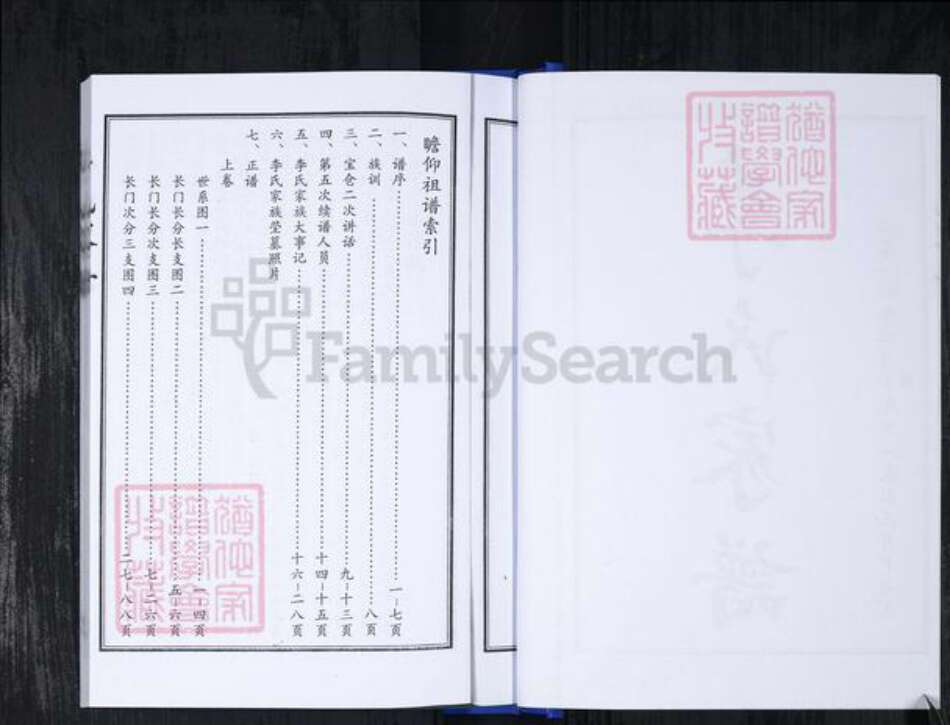 瞻仰祖谱索引
一、谱序……一-七页
二、族训……八页
三、宝仓二次讲话……九-十三页
四、第五次续谱人员……十四-十五页
五、李氏家族大事记……十六-二八页
六、李氏家族茔墓照片
七、正谱
上卷
世系图一……一-四页
长门长分长支图二……五-六页
长门长分次支图三……七-二六页
长门次分三支图四……二七-八八页
FamilySearch
猶他家
譜學會
收藏
猶他家
譜學會
收藏
家
谱